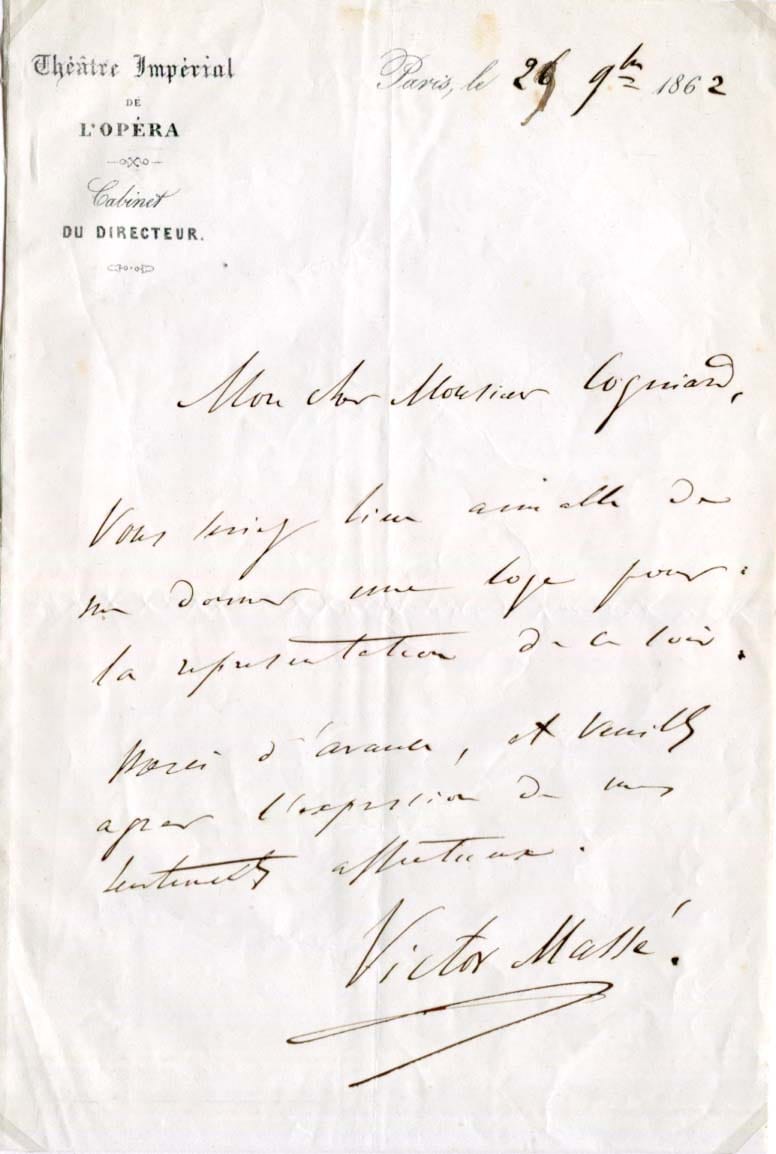 Théâtre Impérial
DE
L'OPÉRA
Cabinet
DU DIRECTEUR.
Paris, le 9bre 1862
Mon cher Monsieur Cogniard,
Vous seriez bien aimable de
me donner une loge pour
la représentation de ce soir.
Merci d'avance, et veuillez
agréer l'expression de mes
sentiments affectueux.
Victor Massé.